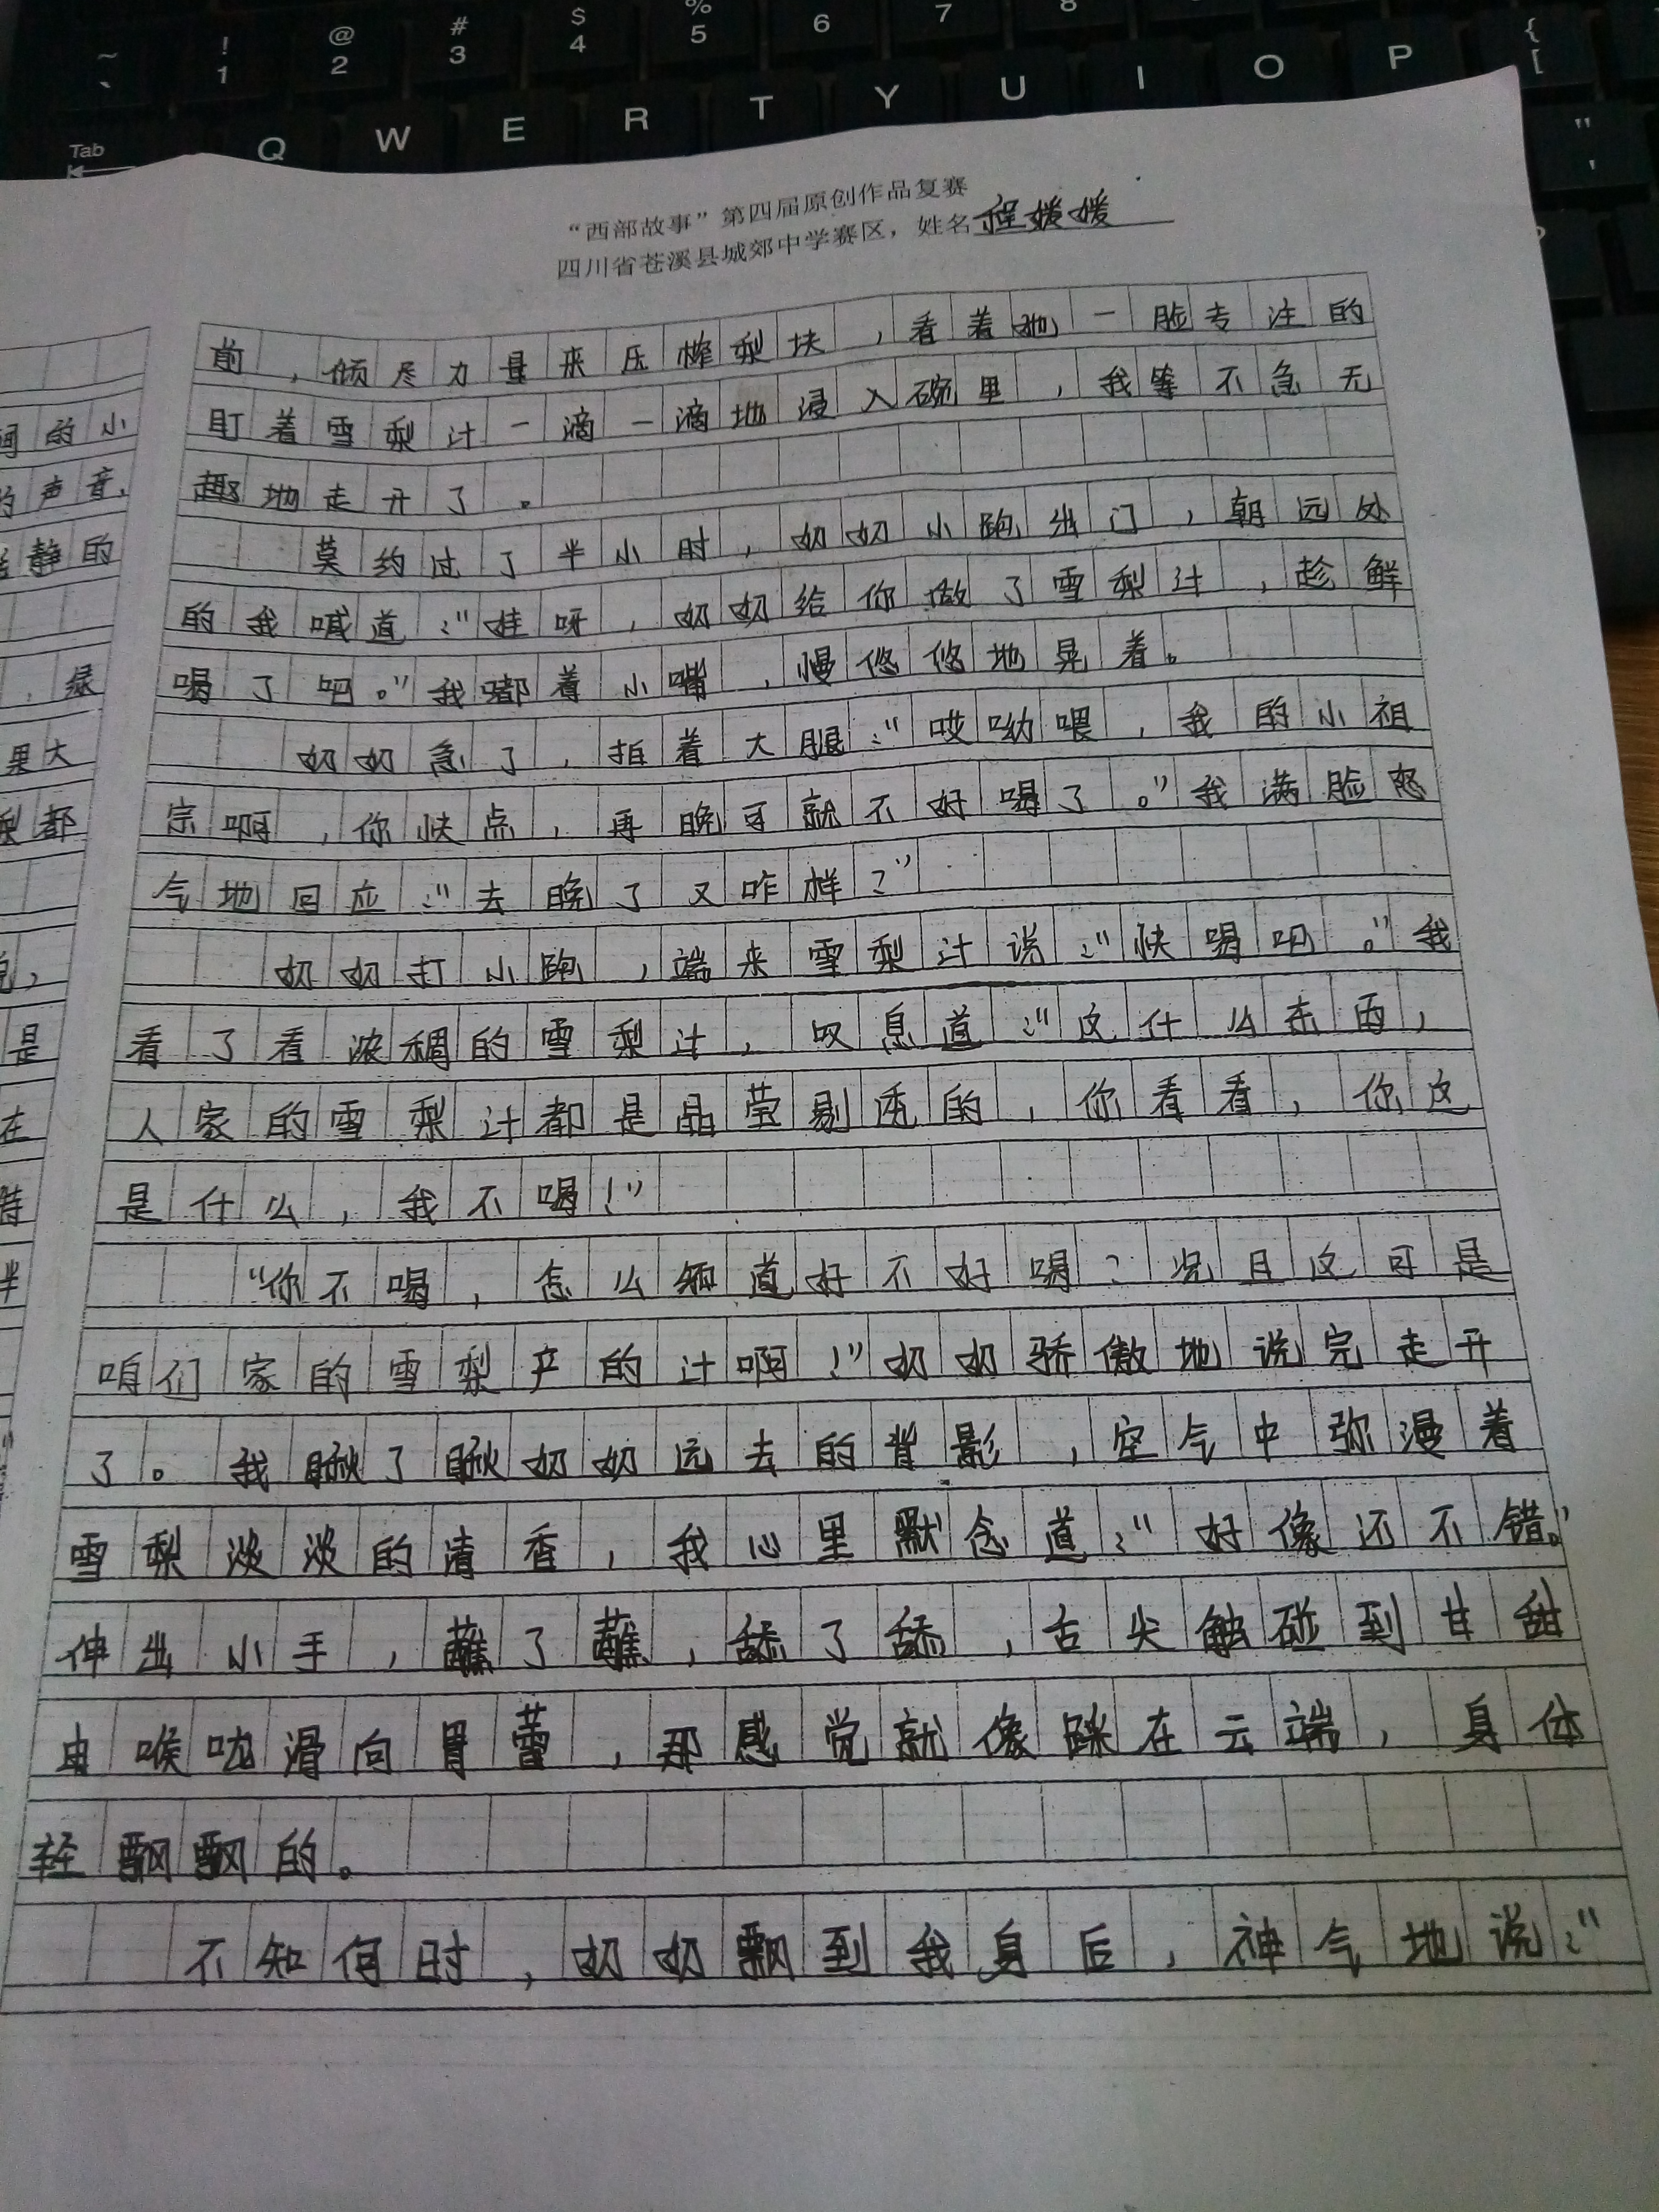 ~ ! @ # $ % 6 7 8 {
` 1 2 3 4 5 [
Tab Q W E R T Y U I O P "
'
“西部故事”第四届原创作品复赛
四川省苍溪县城郊中学赛区，姓名程媛媛
前，倾尽力量来压榨梨块，看着她一脸专注的
盯着雪梨汁一滴一滴地浸入碗里，我等不急无
趣地走开了。
莫约过了半小时，奶奶小跑出门，朝远处
的我喊道：“娃呀，奶奶给你做了雪梨汁，趁鲜
喝了吧。”我嘟着小嘴，慢悠悠地晃着。
奶奶急了，拍着大腿：“哎呦喂，我的小祖
宗啊，你快点，再晚可就不好喝了。”我满脸怒
气地回应：“去晚了又咋样？”
奶奶打小跑，端来雪梨汁说：“快喝吧。”我
看了看浓稠的雪梨汁，叹息道：“这什么东西，
人家的雪梨汁都是晶莹剔透的，你看看，你这
是什么，我不喝！”
“你不喝，怎么知道好不好喝？况且这可是
咱们家的雪梨产的汁啊！”奶奶骄傲地说完走开
了。我瞅了瞅奶奶远去的背影，空气中弥漫着
雪梨淡淡的清香，我心里默念道：“好像还不错。”
伸出小手，蘸了蘸，舔了舔，舌尖触碰到甘甜
由喉咙滑向胃蕾，那感觉就像踩在云端，身体
轻飘飘的。
不知何时，奶奶飘到我身后，神气地说：“
的小
的声音，
静的
，绿
果大
梨都
是
在